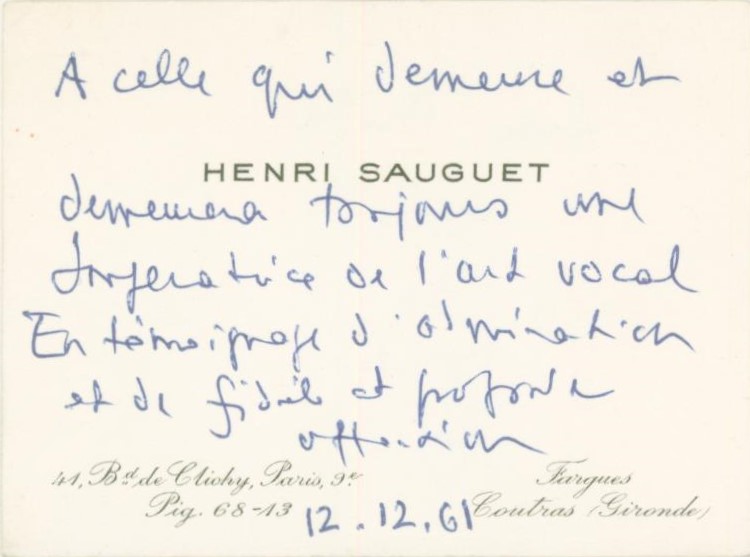 A celle qui demeure et
HENRI SAUGUET
demeurera toujours une
Impératrice de l'art vocal
En témoignage d'admiration
et de fidèle et profonde
affection
41, Bd de Clichy, Paris, 9e
Fargues
Pig. 68-13
12.12.61
Coutras (Gironde)